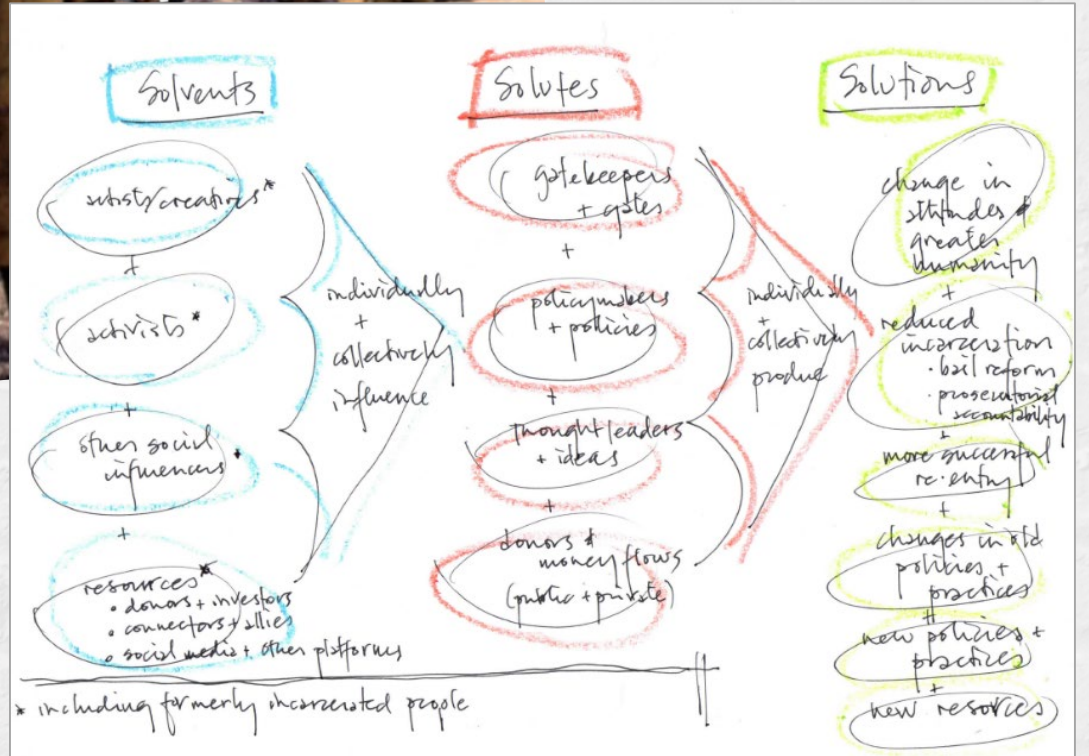 Solvents
artists/creatives*
+
activists*
+
other social
influencers *
+
resources*
• donors + investors
• connectors + allies
• social media + other platforms
individually
+
collectively
influence
Solutes
gatekeepers
+ gates
+
policymakers
+ policies
+
thought leaders
+ ideas
+
donors +
money flows
(public + private)
individually
+
collectively
produce
Solutions
change in
attitudes +
greater
humanity
+
reduced
incarceration
• bail reform
• prosecutorial
accountability
+
more successful
re-entry
+
changes in old
policies +
practices
+
new policies +
practices
+
new resources
* including formerly incarcerated people